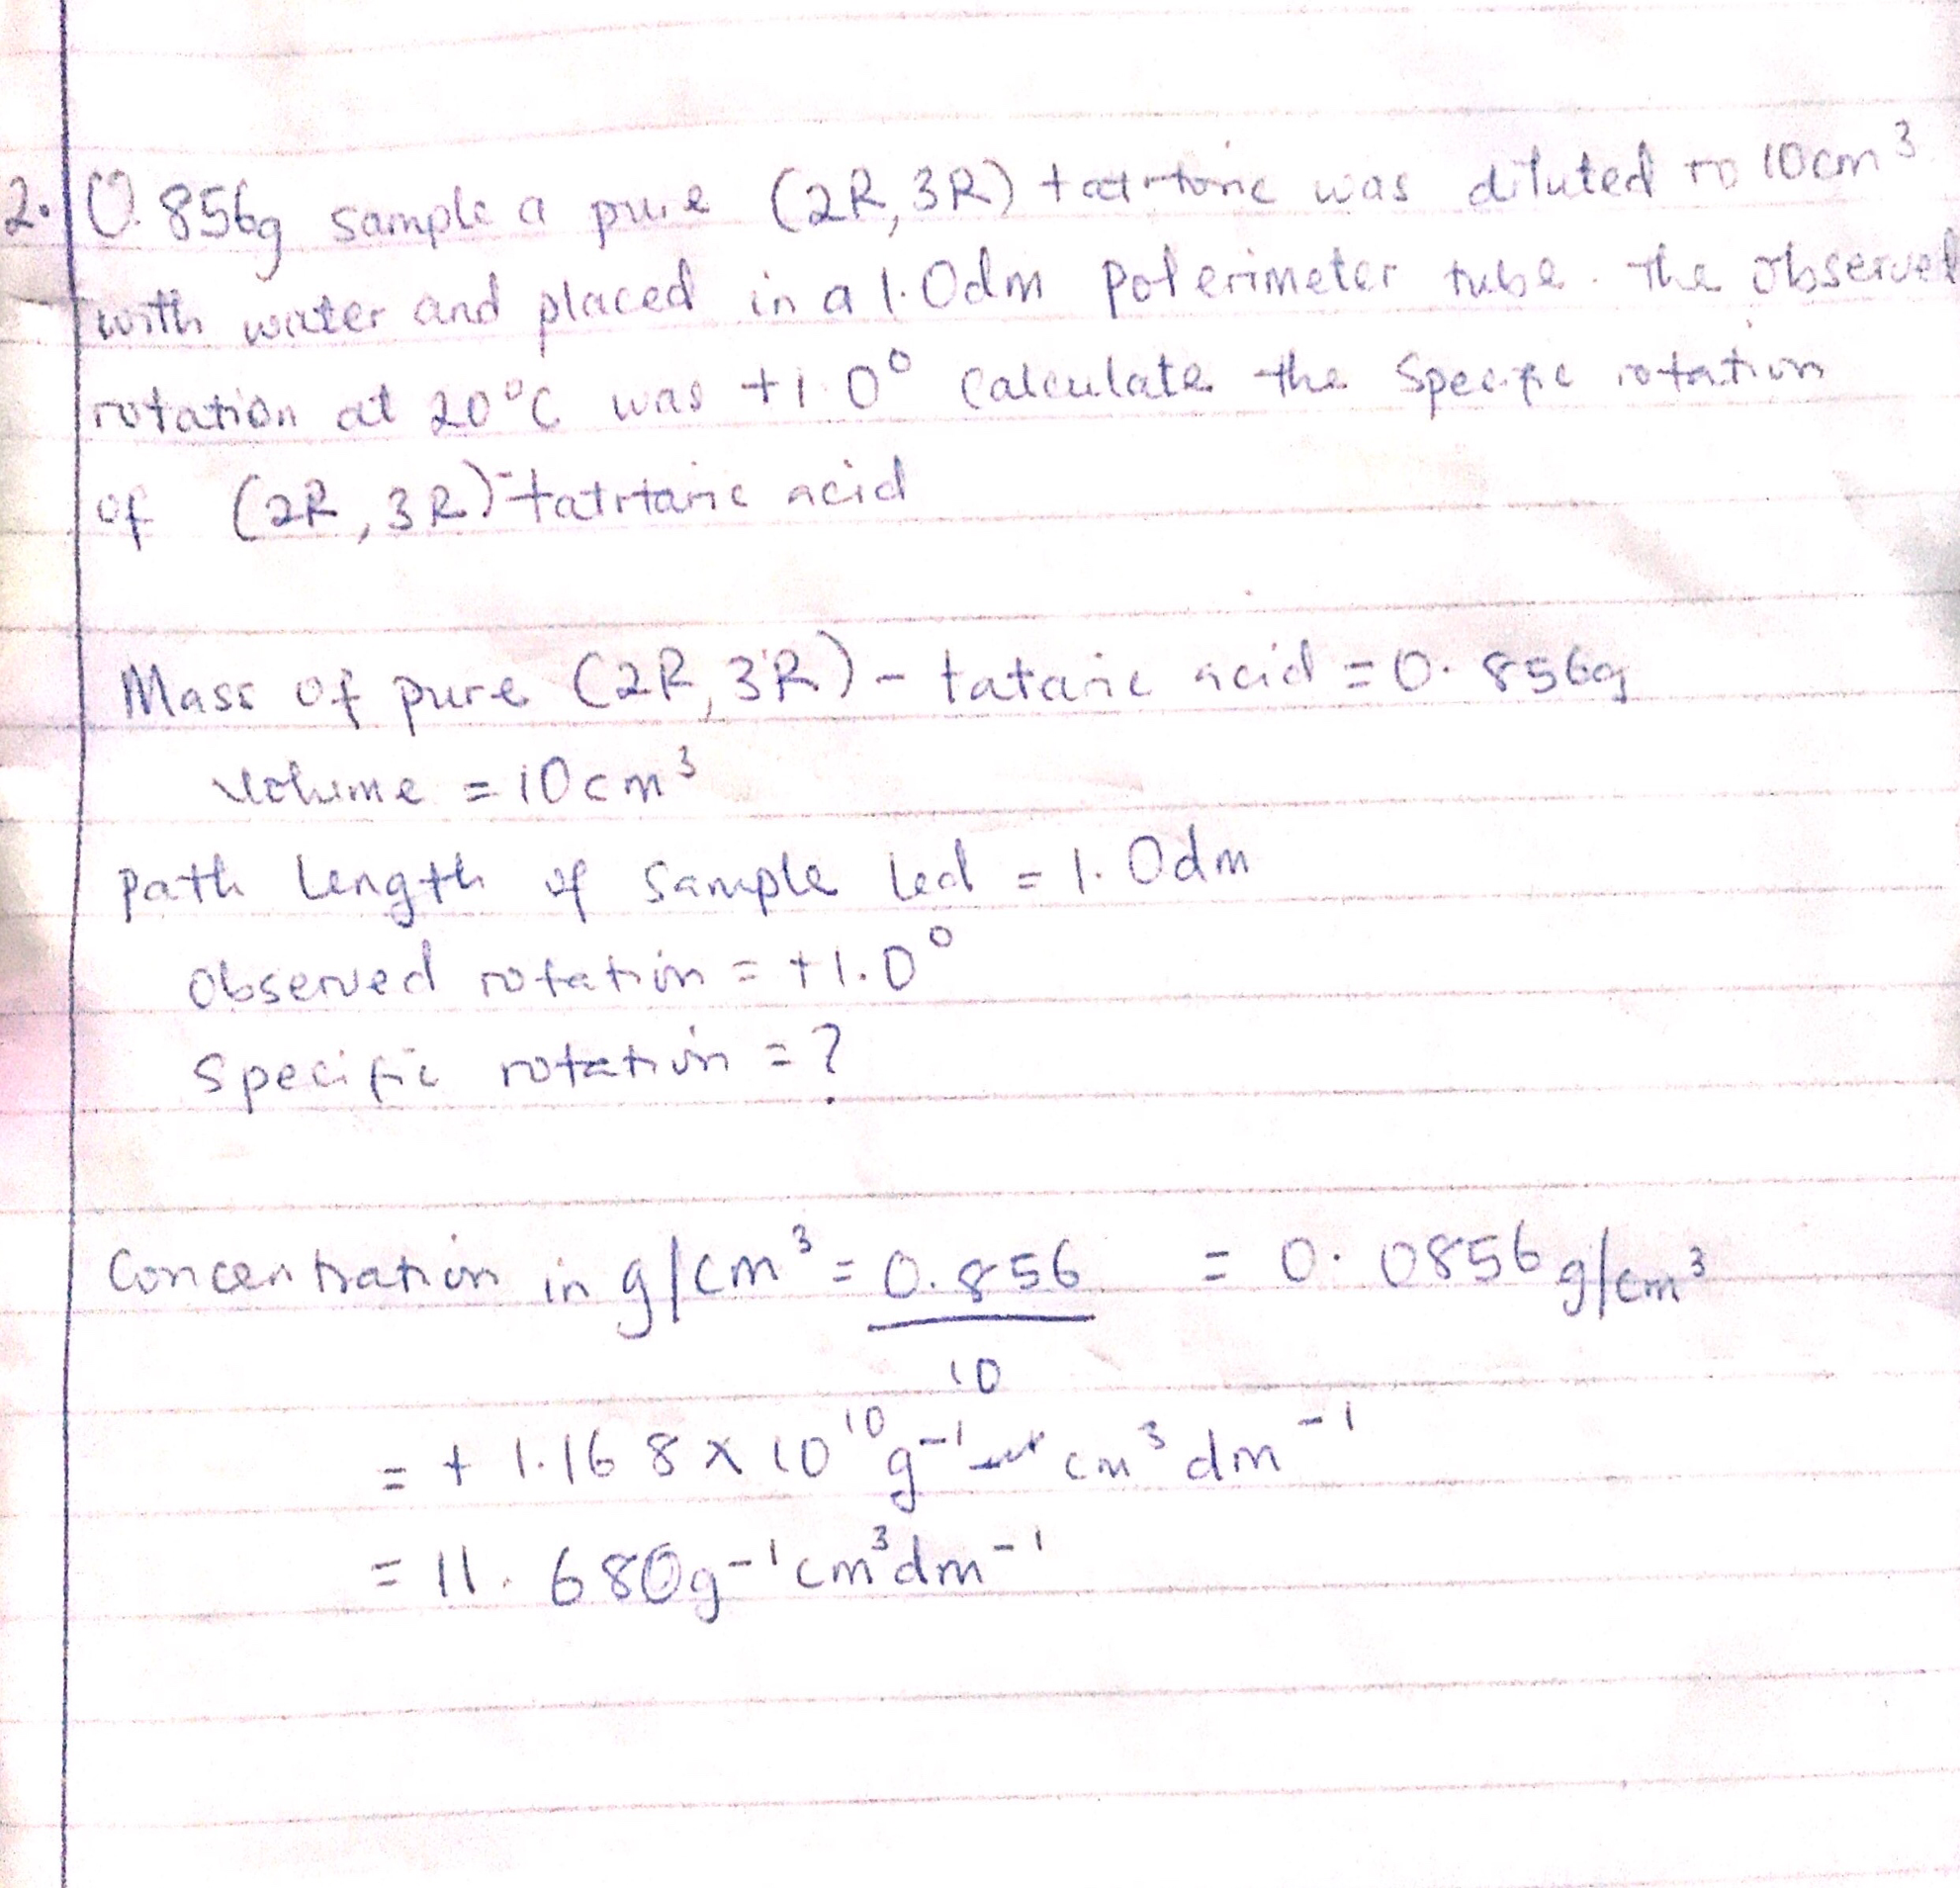 2. 0.856g sample a pure (2R,3R) tartaric was diluted to 10cm³
with water and placed in a 1.0dm polerimeter tube. The observed
rotation at 20°C was +1.0° Calculate the specific rotation
of (2R,3R)-tatrtaric acid
Mass of pure (2R,3R) - tataric acid = 0.856g
Volume = 10cm³
path length of sample = 1.0dm
Observed rotation = +1.0°
Specific rotation = ?
Concentration in g/cm³ = 0.856 = 0.0856 g/cm³
10
= + 1.168 x 10¹⁰ g⁻¹ cm³ dm⁻¹
= 11.680g⁻¹cm³dm⁻¹